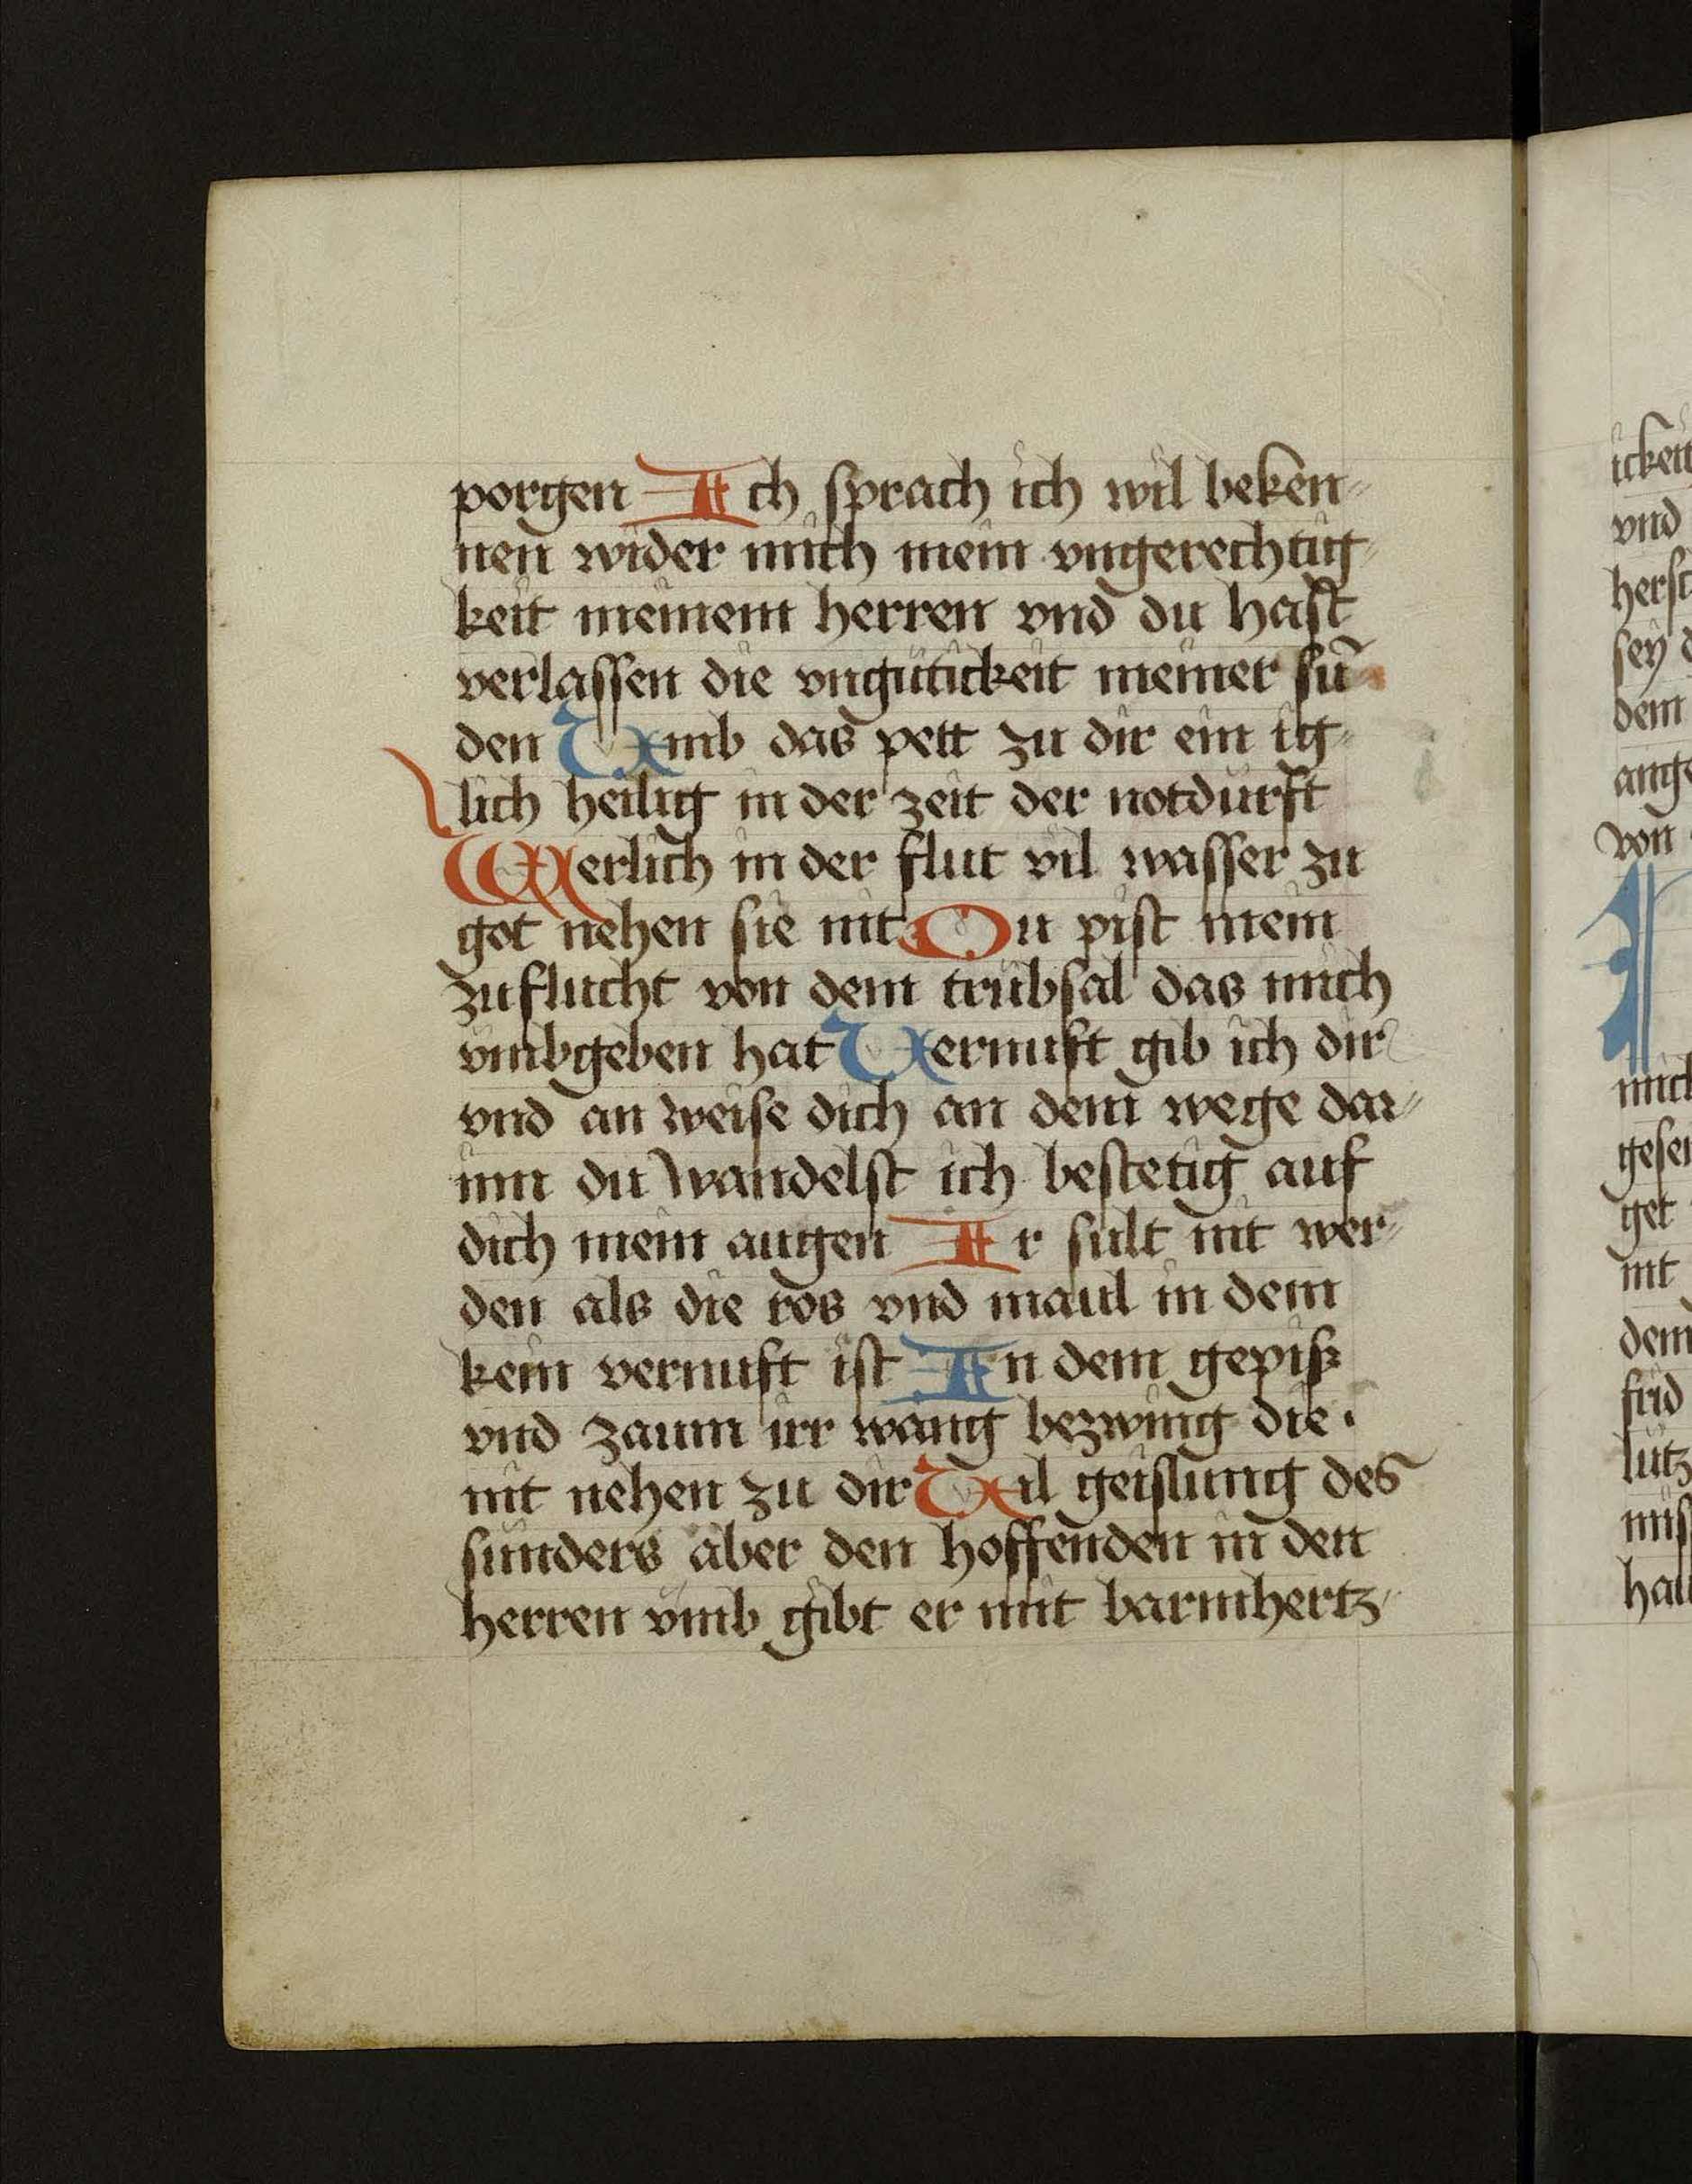 porgen Ich sprach ich wil beken⸗
nen wider mich mein vngerechtig⸗
keit meinem herren vnd du hast
verlassen die vngütickeit meiner sü⸗
den Vmb das pett zu dir ein ig⸗
lich heilig in der zeit der notdurft
Werlich in der flut vil wasser zu
got nehen sie nit Du pist mein
zuflucht von dem trübsal das mich
vmbgeben hat Vernuft gib ich dir
vnd an weise dich an dem wege dar⸗
inn du wandelst ich bestetig auf
dich mein augen Ir sült nit wer⸗
den als die ros vnd maul in dem
kein vernuft ist In dem gepiß
vnd zaum irr wang bezwing die
nit nehen zu dir Vil geislung des
sünders aber den hoffenden in den
herren vmb gibt er mit barmhertz⸗
ickeit
vnd
sey
dem
von
get
nit
dem